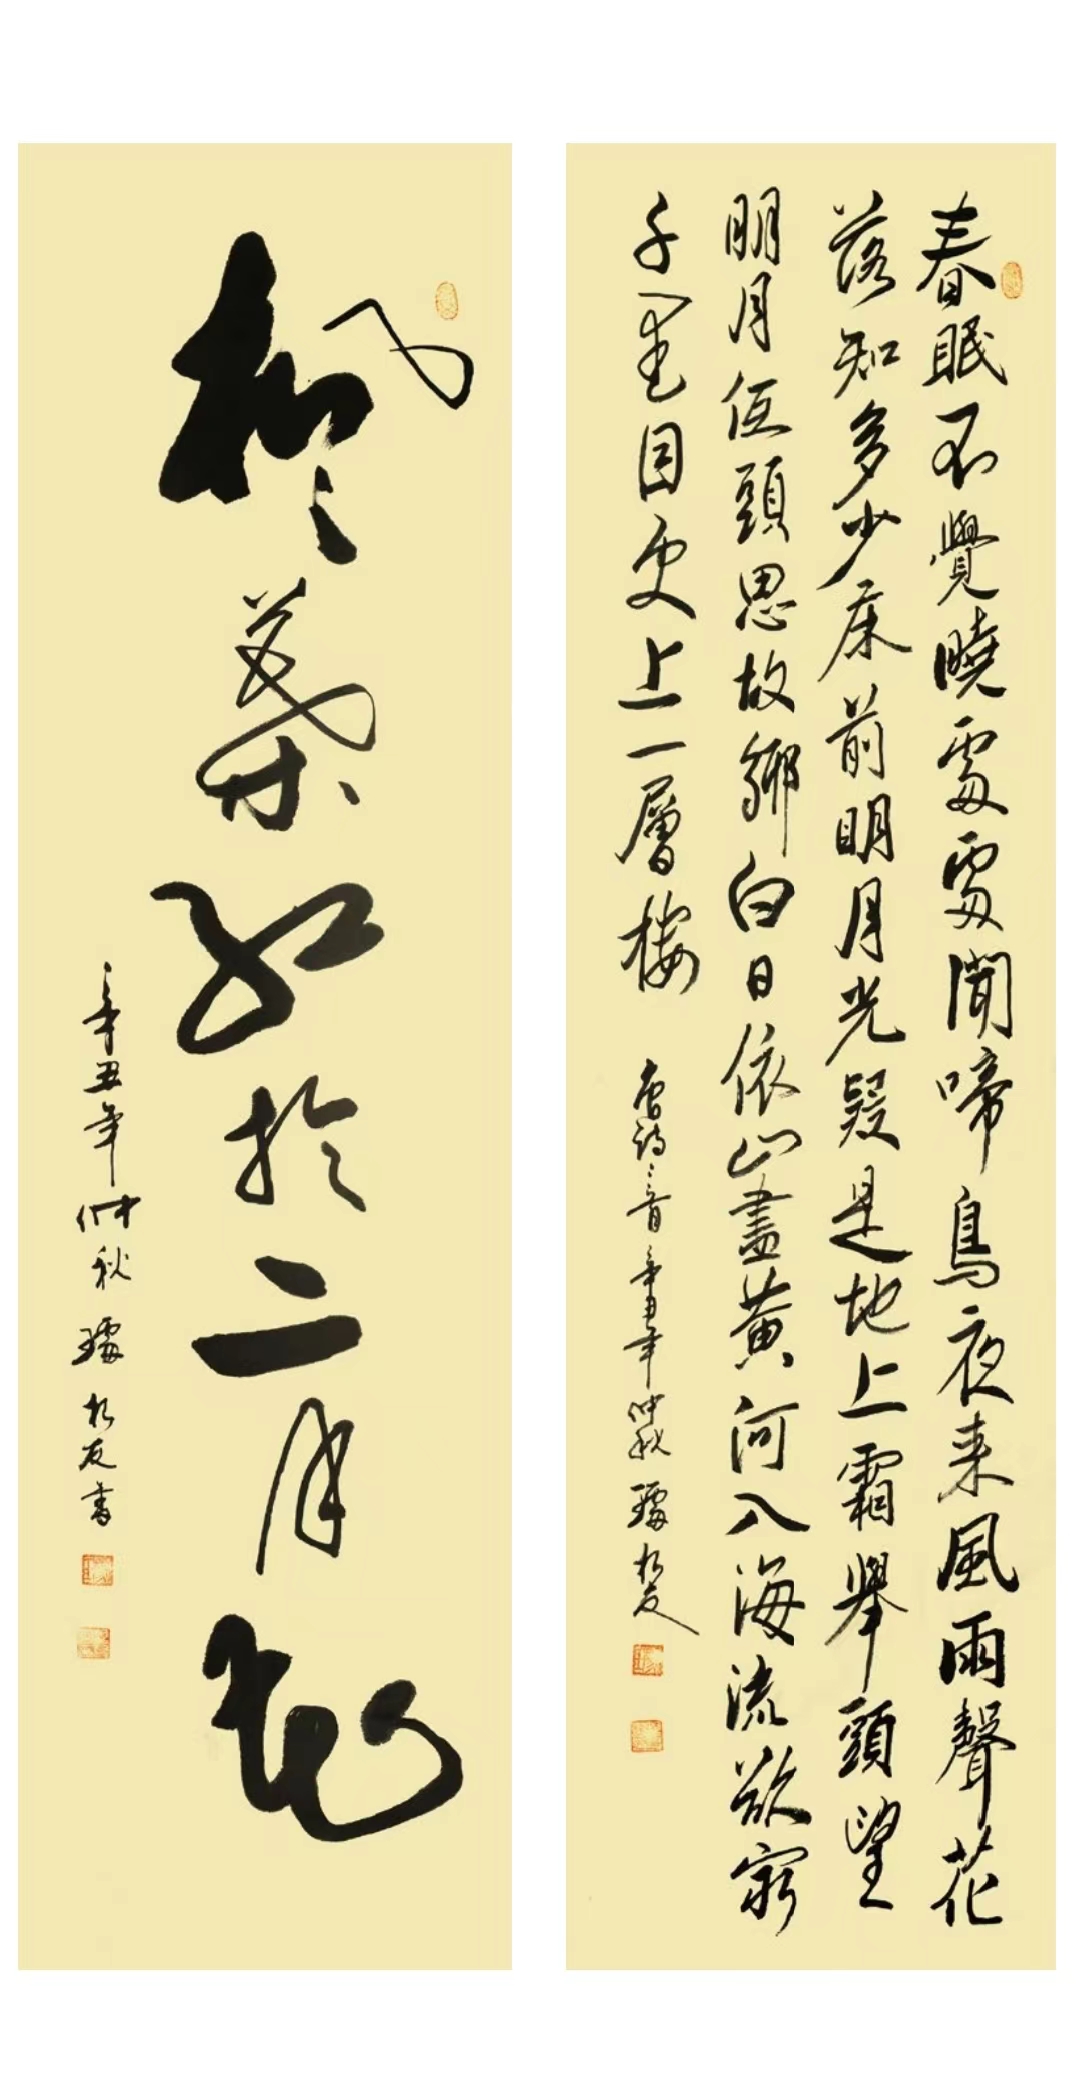 春眠不覺曉處處聞啼鳥夜来風雨聲花
落知多少床前明月光疑是地上霜舉頭望
明月低頭思故鄉白日依山盡黄河入海流欲窮
千里目更上一層樓
唐詩三首 辛丑年仲秋 璩松友
楓葉红於二月花
辛丑年仲秋 璩松友書